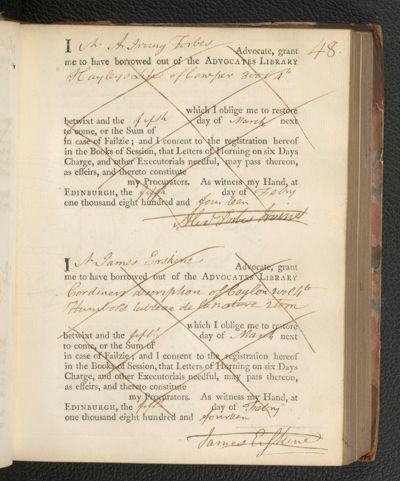 48.
I Mr A. Irving Forbes Advocate, grant
me to have borrowed out of the ADVOCATES LIBRARY
Hayley's Life of Cowper 3 vol 4to
which I oblige me to restore
betwixt and the fifth day of March next
to come, or the Sum of
in case of Failzie; and I consent to the registration hereof
in the Books of Session, that Letters of Horning on six Days
Charge, and other Executorials needful, may pass thereon,
as effeirs, and thereto constitute
my Procurators. As witness my Hand, at
EDINBURGH, the fifth day of Febry
one thousand eight hundred and fourteen
Alexr Forbes Irvine
I Mr James Erskine Advocate, grant
me to have borrowed out of the ADVOCATES LIBRARY
Cordiner's description of Ceylon 2 vol 4to
Humbold tableau de la nature 2 tom
which I oblige me to restore
betwixt and the fifth day of March next
to come, or the Sum of
in case of Failzie; and I consent to the registration hereof
in the Books of Session, that Letters of Horning on six Days
Charge, and other Executorials needful, may pass thereon,
as effeirs, and thereto constitute
my Procurators. As witness my Hand, at
EDINBURGH, the fifth day of Febry
one thousand eight hundred and fourteen
James Erskine